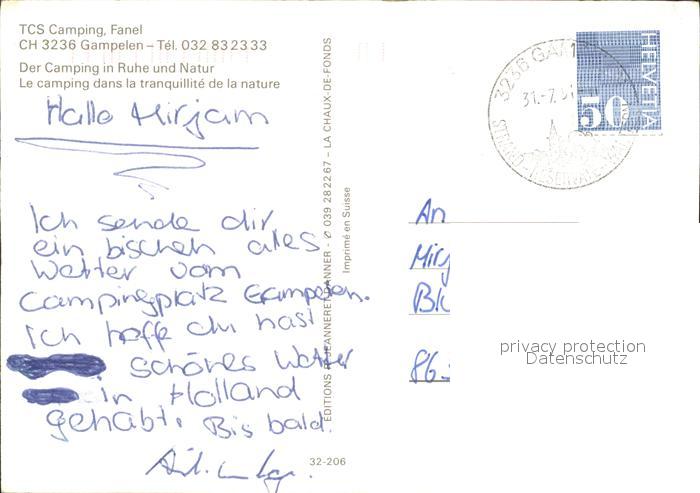 TCS Camping, Fanel
CH 3236 Gampelen – Tél. 032 83 23 33
Der Camping in Ruhe und Natur
Le camping dans la tranquillité de la nature
Hallo Mirjam
Ich sende dir
ein bischen alles
Wetter vom
Campingplatz Gampelen.
Ich hoffe du hast
schönes Wetter
in Holland
gehabt. Bis bald.
EDITIONS P. JEANNERET-DANNER - ∅ 039 28 22 67 - LA CHAUX-DE-FONDS
Imprimé en Suisse
32-206
3236 GAM
31.-7.
HELVETIA
50
An
Mirj
86
privacy protection
Datenschutz